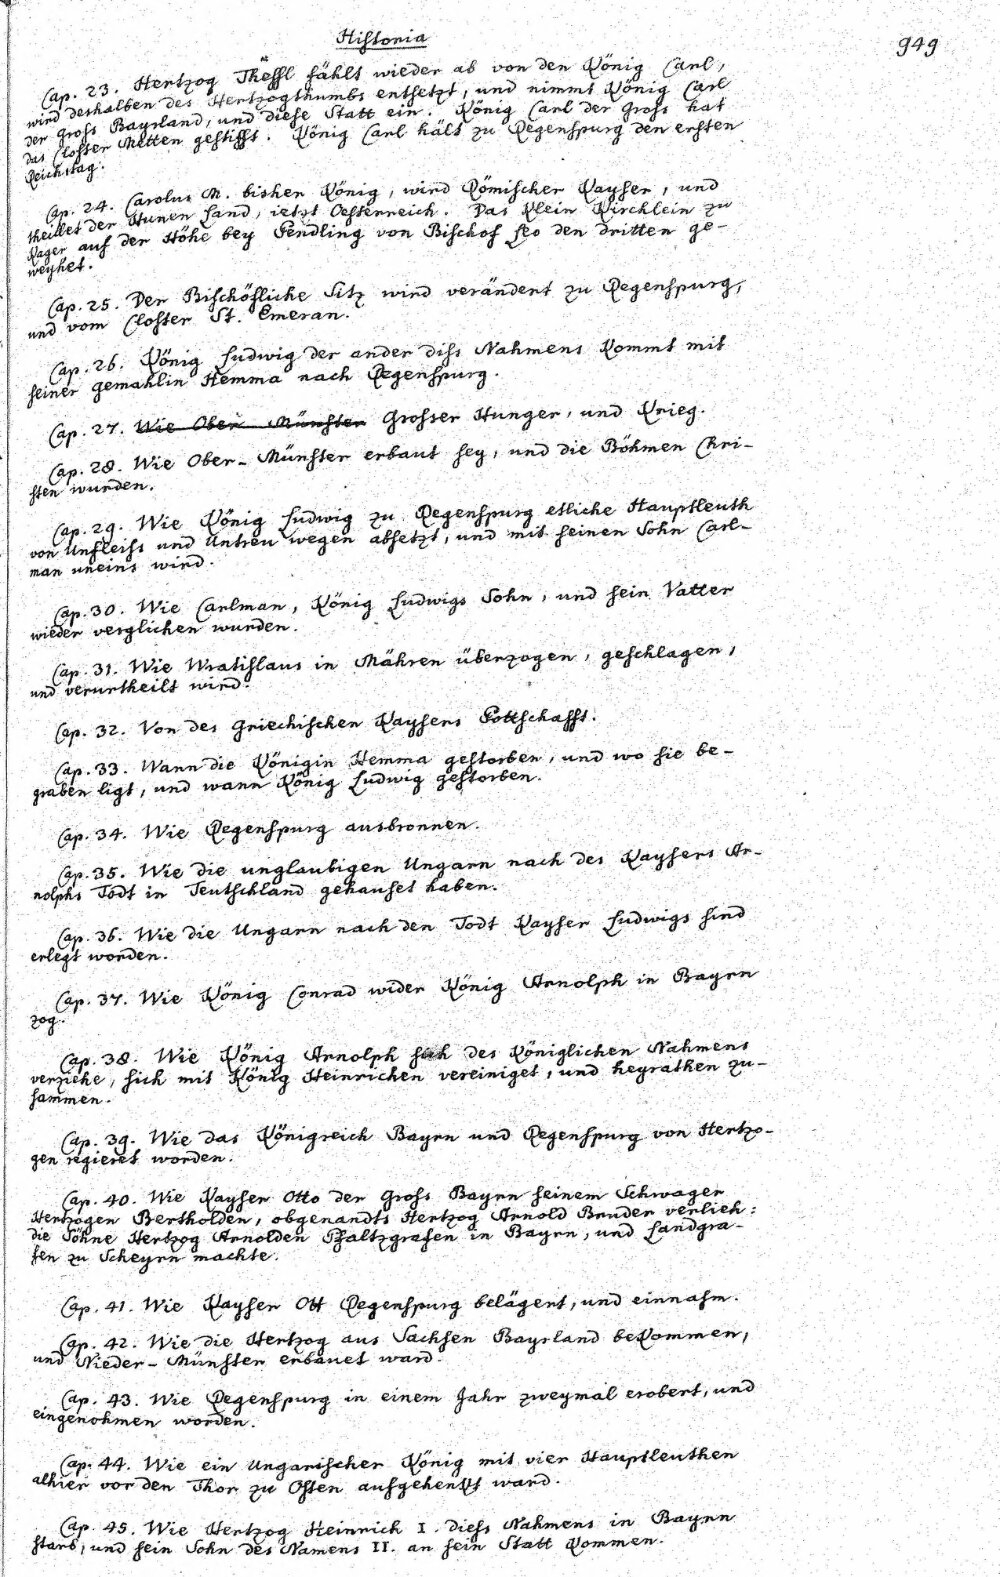 Historia
949
Cap. 23. Hertzog Thessl fählt wieder ab von den König Carl,
wird deshalben des Hertzogthumbs entsetzt, und nimmt König Carl
der Gross Bayrland, und diese Statt ein. König Carl der Gross hat
das Closter Metten gestifft. König Carl hält zu Regenspurg den ersten
Reichstag.
Cap. 24. Carolus M. bisher König, wird Römischer Kayser, und
theillet der Hunen Land, ietzt Oesterreich. Das Klein Kirchlein zu
Kager auf der Höhe bey Pendling von Bischof Leo den dritten ge-
weyhet.
Cap. 25. Der Bischöfliche Sitz wird verändert zu Regenspurg,
und vom Closter St. Emeran.
Cap. 26. König Ludwig der ander diss Nahmens Kommt mit
seiner gemahlin Hemma nach Regenspurg.
Cap. 27. Wie Ober Münster Grosser Hunger, und Krieg.
Cap. 28. Wie Ober-Münster erbaut sey, und die Böhmen Chri-
sten wurden.
Cap. 29. Wie König Ludwig zu Regenspurg etliche Hauptleuth
von Unfleiss und Untreu wegen absetzt, und mit seinen Sohn Carl-
man uneins wird.
Cap. 30. Wie Carlman, König Ludwigs Sohn, und sein Vatter
wieder verglichen wurden.
Cap. 31. Wie Wratislaus in Mähren überzogen, geschlagen,
und verurtheilt wird.
Cap. 32. Von des Griechischen Kaysers Pottschafft.
Cap. 33. Wann die Königin Hemma gestorben, und wo sie be-
graben ligt, und wann König Ludwig gestorben.
Cap. 34. Wie Regenspurg ausbronnen.
Cap. 35. Wie die unglaubigen Ungarn nach des Kaysers Ar-
nolphs Todt in Teutschland gehauset haben.
Cap. 36. Wie die Ungarn nach den Todt Kayser Ludwigs sind
erlegt worden.
Cap. 37. Wie König Conrad wider König Arnolph in Bayrn
zog.
Cap. 38. Wie König Arnolph sich des Königlichen Nahmens
verziehe, sich mit König Heinrichen vereiniget, und heyrathen zu-
sammen.
Cap. 39. Wie das Königreich Bayrn und Regenspurg von Hertzo-
gen regieret worden.
Cap. 40. Wie Kayser Otto der Gross Bayrn seinem Schwager
Hertzogen Bertholden, obgenandts Hertzog Arnold Bruder verlieh:
die Söhne Hertzog Arnolden Pfaltzgrafen in Bayrn, und Landgra-
fen zu Scheyrn machte.
Cap. 41. Wie Kayser Ott Regenspurg belägert, und einnahm.
Cap. 42. Wie die Hertzog aus Sachsen Bayrland beKommen,
und Nieder-Münster erbauet ward.
Cap. 43. Wie Regenspurg in einem Jahr zweymal erobert, und
eingenohmen worden.
Cap. 44. Wie ein Ungarischer König mit vier Hauptleuthen
alhier vor den Thor zu Osten aufgehenkt ward.
Cap. 45. Wie Hertzog Heinrich I. diess Nahmens in Bayrn
starb, und sein Sohn des Namens II. an sein Statt Kommen.